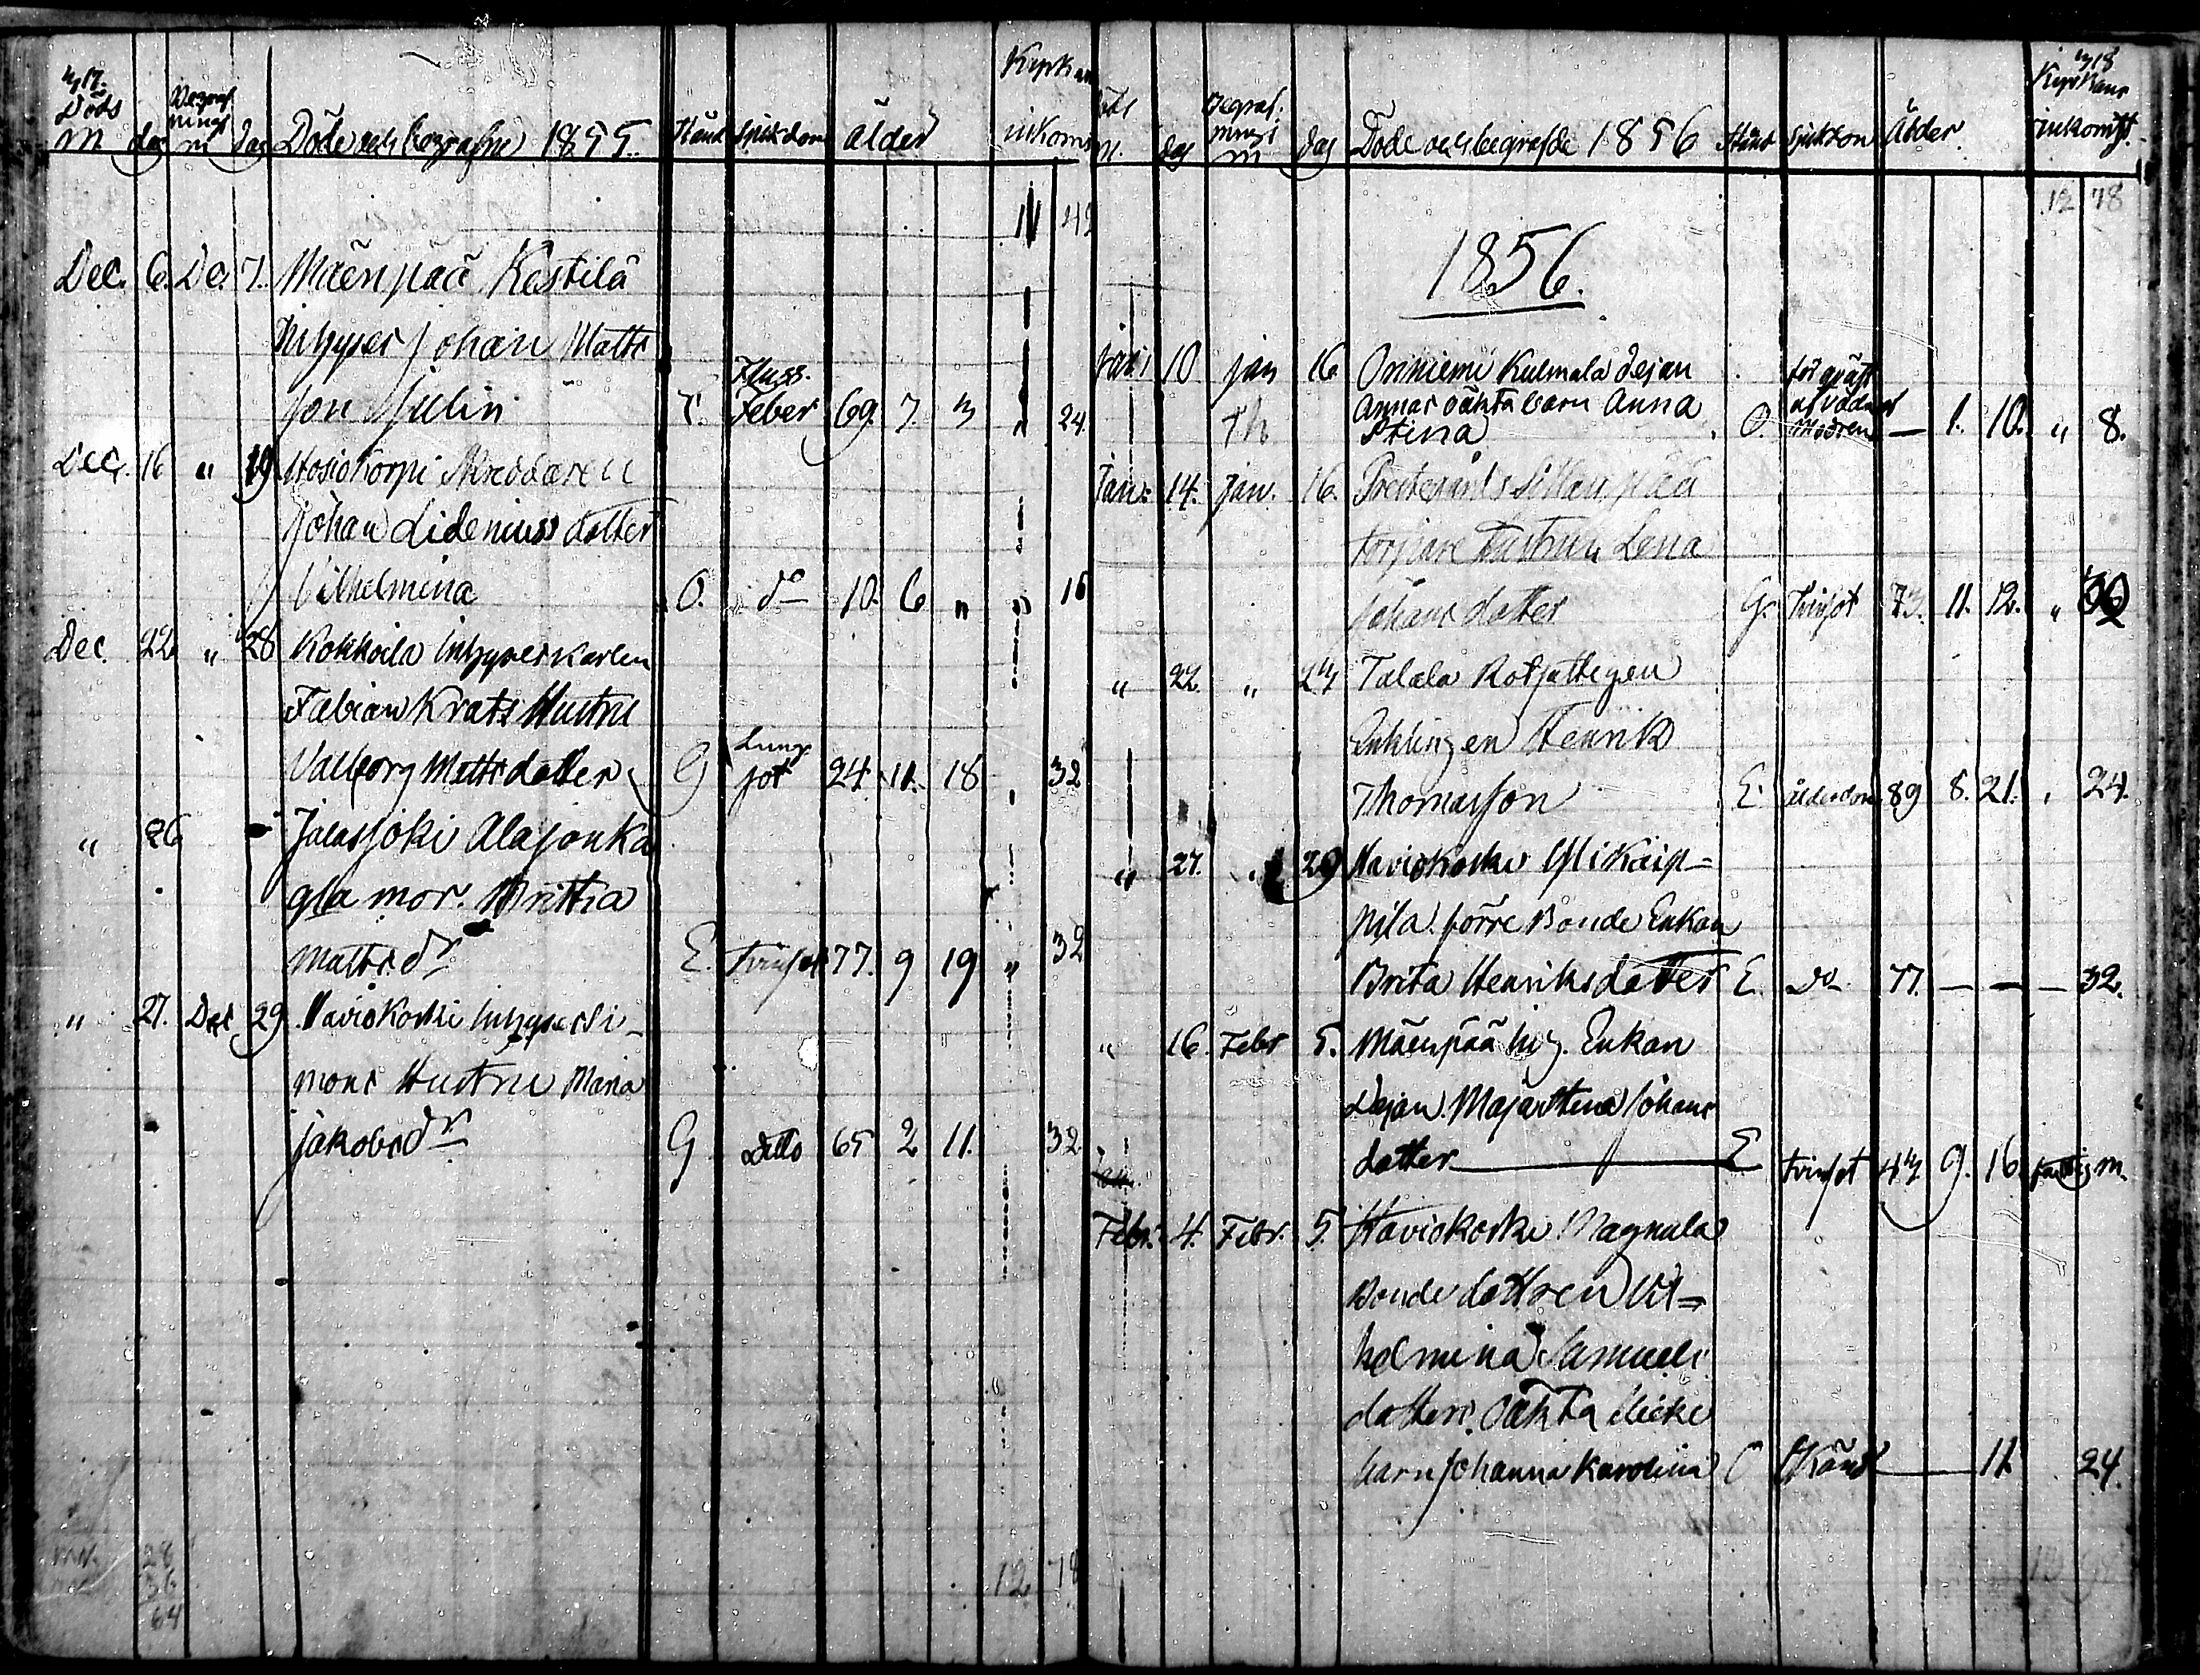 Döds
Begraf
nings
M dag m dag Döde och begrafne 1855. Stånd Sjukdom ålder Kyrkans inkomst
11 42
Dec. 6. De. 7. Mäenpää Kestilä
Inhyses Johan Matts
son Julin E. Fluss. Feber 69. 7. 3 " 24.
Dec. 16 " 19 Hosiokorpi Skreddaren
Johan Lidenius dotter
Vilhelmina O. do 10. 6 " " 16
Dec. 22 " 28 Kokkoila Inhyseskarlen
Fabian Krats Hustru
Valborg Matts dotter G Lung sot 24 11. 18 32
" 26 Jalasjoki Alajouka
gla mor. Britta
Matts dr E. Tvinsot 77. 9 19 " 32
" 27. Dec 29 Haviokoski Inhyses Si-
mons Hustru Maria
Jakobs dr G Ditto 65 2 11. 32
28
36
64
12 78
Döds
Begraf-
nings
M. dag m dag Döde och begrafde 1856 Stånd Sjukdom Ålder Kyrkans inkomst.
12 78
1856.
Jan. 10 Jan 16 Oriniemi Kulmala Pejan
Annas oäkta barn Anna
Stina O. — 1. 10. " 8.
Janu. 14. Jan. 16. Prestegårds Sillanpää
torpare hustrun Lena
Johans dotter G. Tvinsot 73. 11. 12. "
" 22. " 24 Talala Rotfattigen
Enklingen Henrik
Thomasson E. ålderdom 89 8. 21. " 24.
" 27. " 29 Haviokoski
förre Bonde Enkan
Brita Henriksdotter E. do 77. — — — 32.
" 16. Febr 5. Mäenpää Inhy. Enkan
Pejan Maja Stina Johans
dotter E Tvinsot 44 9. 16 fattig m.
Febr. 4. Febr. 5. Haviokoski Magnula
Bonde dottren Vil-
helmina Samuels
dotters oäkta flicke
barn Johanna Karolina O Okänd 11 24.